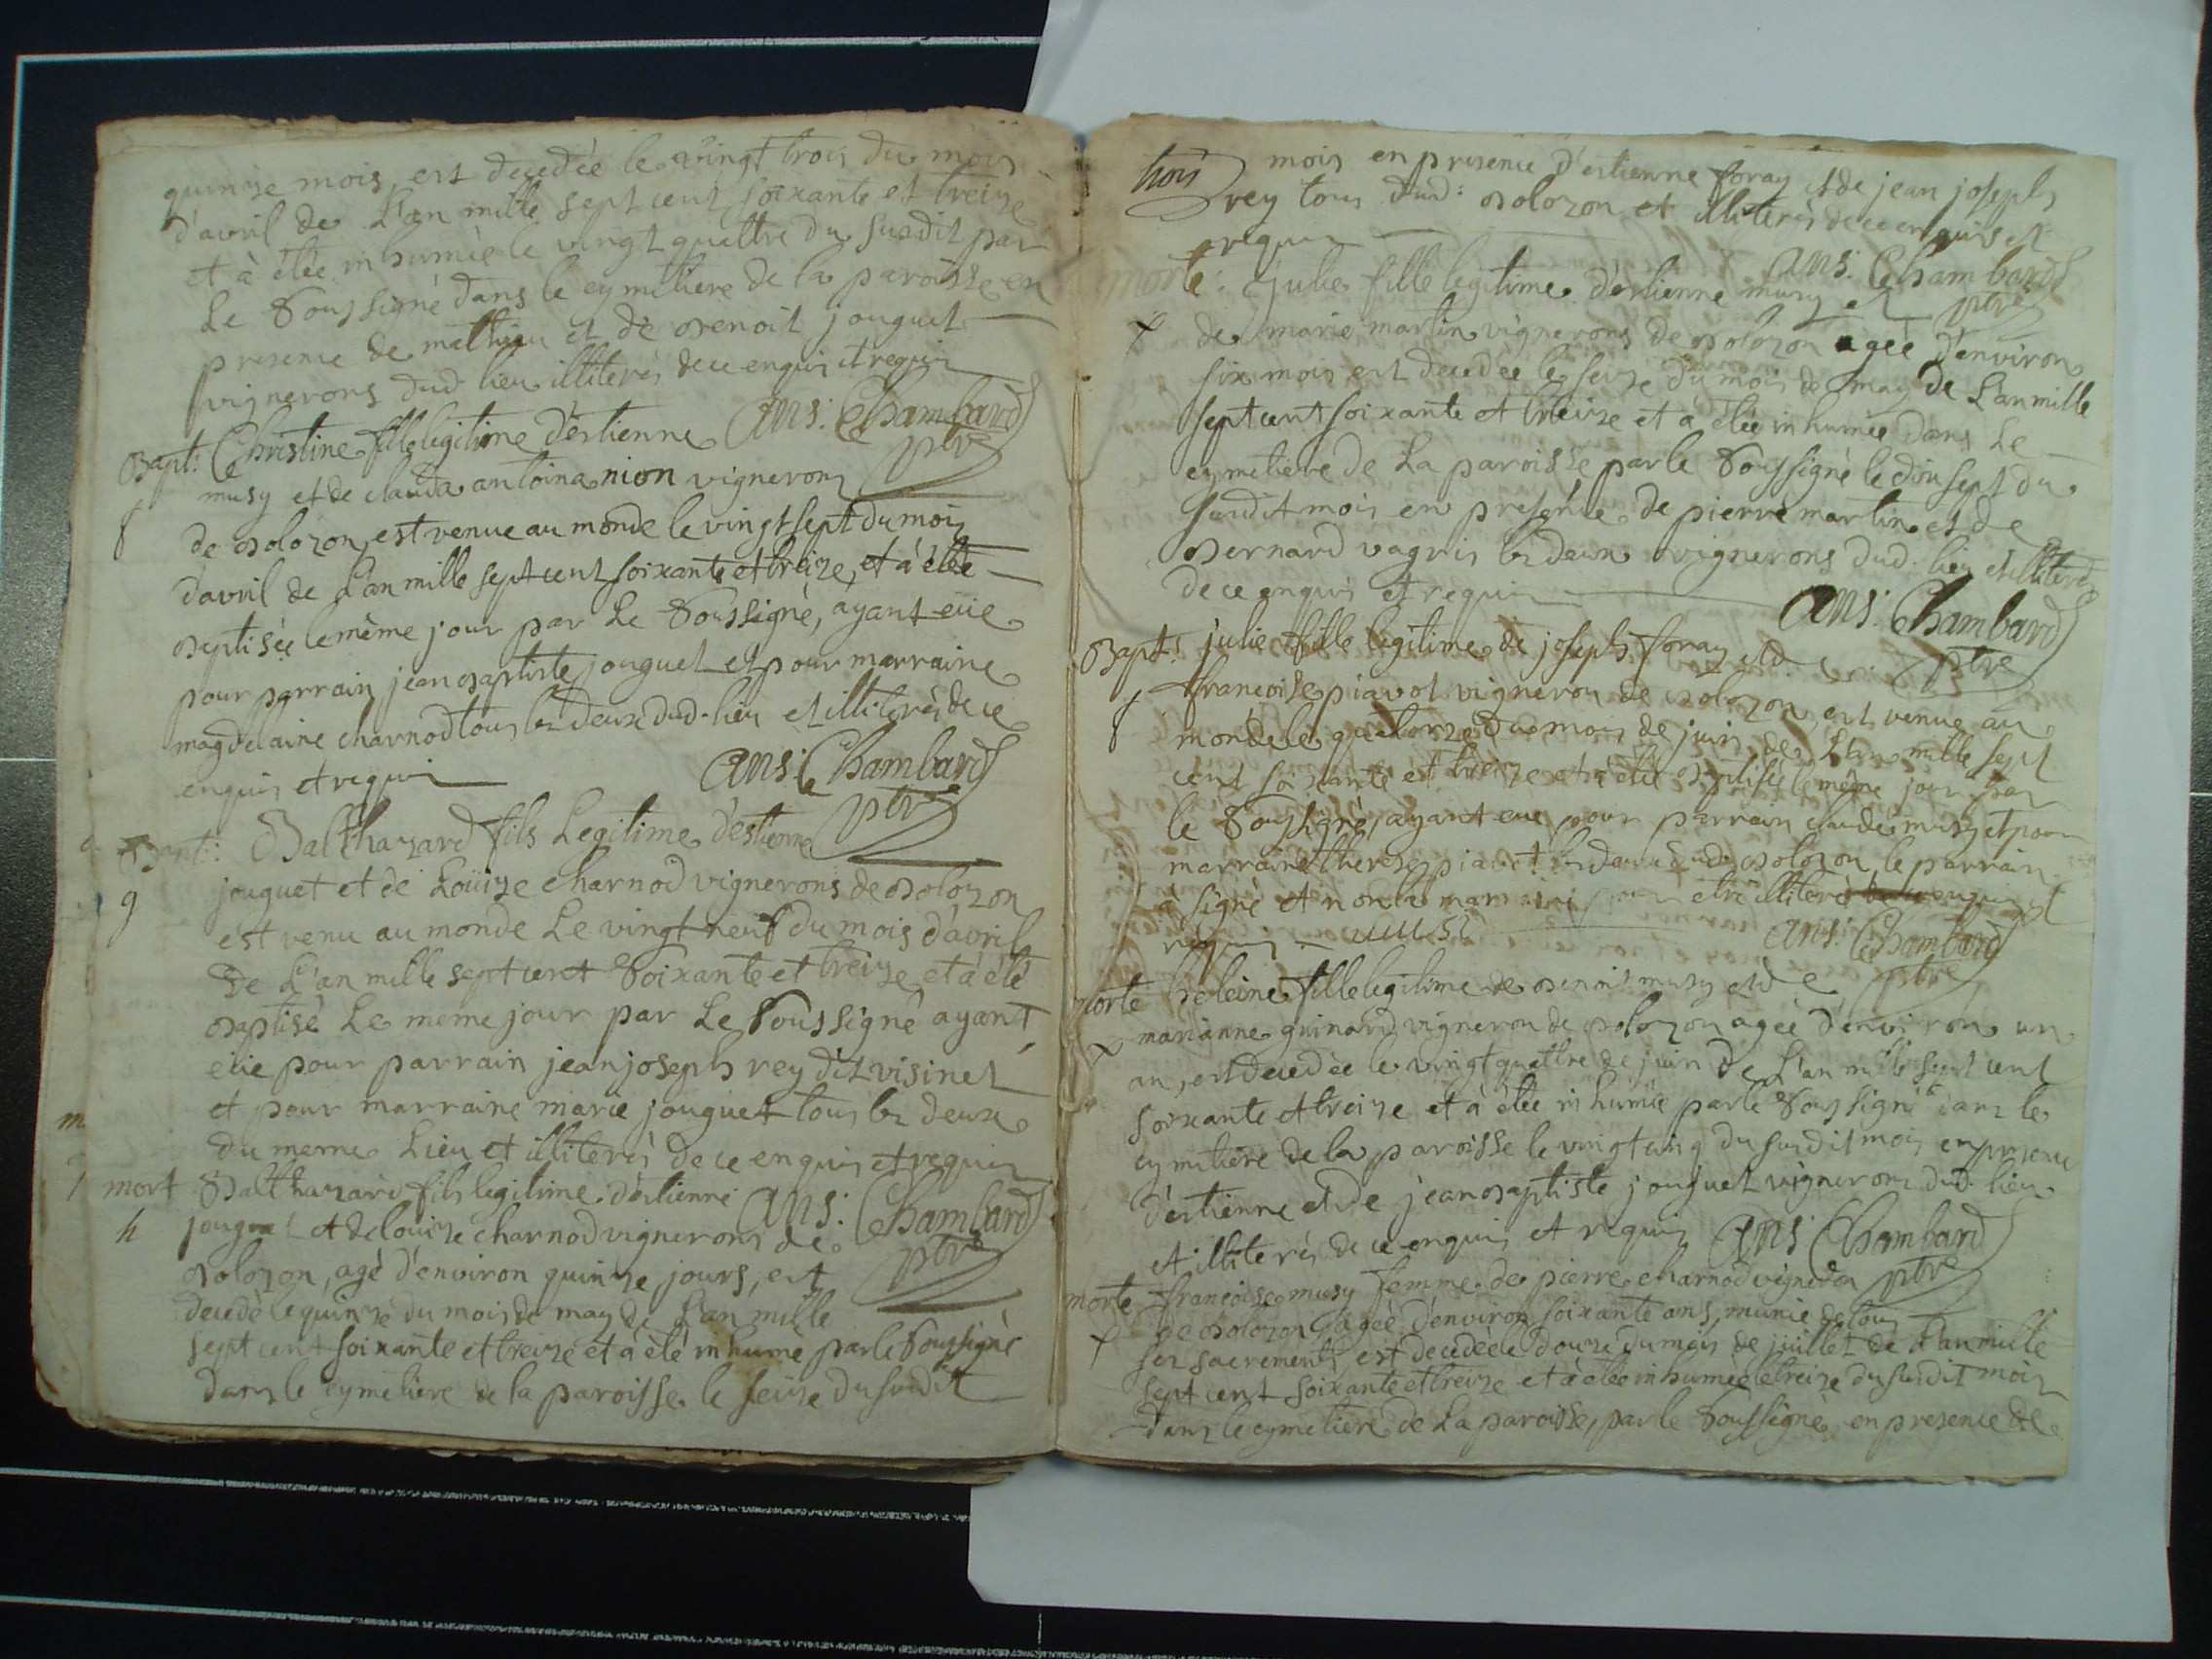 quinze mois, est decedée le vingt trois du mois
d'avril de L'an mille sept cent soixante et treize
et à étée inhumée le vingt quattre du susdit par
Le Soussigné dans le cymetiere de la paroisse en
presence de mathieu et de Benoit jouguet
vignerons dud. lieu illiterés de ce enquis et requis
ans: Chambard
ptre
Bapt: Christine fille legitime d'estienne
musy et de clauda antoina nion vignerons
f
de Bolozon, est venue au monde le vingt sept du mois
d'avril de L'an mille sept cent soixante et treize, et à étée
Baptisée le même jour par Le Soussigné, ayant eüe
pour parrain jean Baptiste jouguet et pour marraine
magdelaine charnod tous les deux dud. lieu et illiterés de ce
enquis et requis
ans: Chambard
ptre
Bapt: Balthazard fils Legitime d'estienne
jouguet et de Loüize charnod vignerons de Bolozon
g
est venu au monde Le vingt neuf du mois d'avril
de L'an mille sept cent Soixante et treize, et à été
Baptisé Le meme jour par Le Soussigné ayant
eüe pour parrain jean joseph rey dit visinet
et pour marraine marie jouguet tous les deux
du meme Lieu et illiterés de ce enquis et requis
mort Balthazard fils legitime d'estienne
ans: Chambard
h
jouguet et de louize charnod vignerons de
ptre
Bolozon, agé d'environ quinze jours, est
decedé le quinze du mois de may de L'an mille
sept cent soixante et treize et à été inhumé par le Soussigné
dans le cymetiere de la paroisse le seize du susdit
trois mois en presence d'estienne foray et de jean joseph
rey tous dud: Bolozon et illiterés de ce enquis et
requis
ans: Chambard
ptre
morte: julie fille legitime d'estienne musy et
de marie martin vignerons de Bolozon agée d'environ
six mois est decedée le seize du mois de may de L'an mille
sept cent soixante et treize et a étée inhumée dans Le
cymetiere de La paroisse par le Soussigné le dix sept du
susdit mois en presence de pierre martin et de
Bernard vagris les deux vignerons dud. lieu et illiterés
de ce enquis et requis
ans: Chambard
ptre
Bapt: julie fille legitime de joseph foray et de
francoise piavot vigneron de Bolozon, est venue au
f
monde le quatorze du mois de juin de L'an mille sept
cent soixante et treize et à étée Baptisée le même jour par
le Soussigné, ayant eue pour parrain claude musy et pour
marraine therese piavot les deux dud. Bolozon le parrain
à signé et non la marraine pour etre illiteré enquis et
requis musi
ans: Chambard
ptre
morte heleine fille legitime de Benoit musy et de
marianne guinard vigneron de Bolozon agée d'environ un
an, est decedée le vingt quattre de juin de L'an mille sept cent
soixante et treize et à étée inhumée par le Soussigné dans le
cymetiere de la paroisse le vingt cinq du susdit mois en presence
d'estienne et de jean Baptiste jouguet vignerons dud. lieu
et illiterés de ce enquis et requis
ans: Chambard
ptre
morte francoise musy femme de pierre charnod vigneron
de Bolozon agée d'environ soixante ans, munie de tous
ses sacrements, est decedée le douze du mois de juillet de L'an mille
sept cent soixante et treize et à étée inhumée le treize du susdit mois
dans le cymetiere de La paroisse, par le Soussigné en presence de